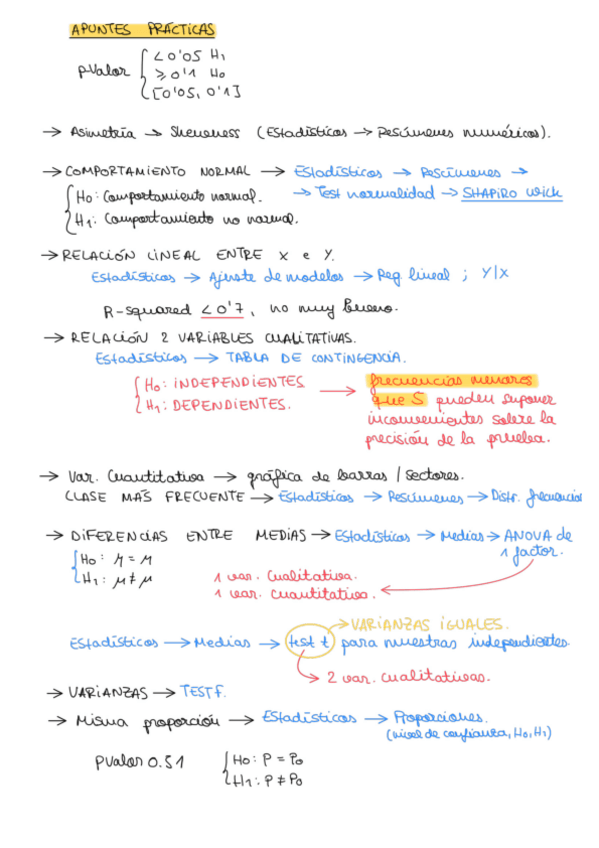 APUNTES PRÁCTICAS
pValor { < 0'05 H1
≥ 0'1 H0
[0'05, 0'1]
→ Asimetría → Skewness (Estadísticos → Resúmenes numéricos).
→ COMPORTAMIENTO NORMAL → Estadísticos → Resúmenes →
→ Test normalidad → SHAPIRO Wick
{ H0: Comportamiento normal.
H1: Comportamiento no normal.
→ RELACIÓN LINEAL ENTRE X e Y.
Estadísticos → Ajuste de modelos → Reg. lineal ; Y|X
R-squared < 0'7, no muy bueno.
→ RELACIÓN 2 VARIABLES CUALITATIVAS.
Estadísticos → TABLA DE CONTINGENCIA.
{ H0: INDEPENDIENTES
H1: DEPENDIENTES.
→ frecuencias menores
que 5 pueden suponer
inconvenientes sobre la
precisión de la prueba.
→ Var. Cuantitativa → gráfica de barras / sectores.
CLASE MÁS FRECUENTE → Estadísticos → Resúmenes → Distr. frecuencias
→ DIFERENCIAS ENTRE MEDIAS → Estadísticos → Medias → ANOVA de
1 factor.
{ H0: μ = μ
H1: μ ≠ μ
1 var. Cualitativa.
1 var. cuantitativa.
→ VARIANZAS IGUALES.
Estadísticos → Medias → test t para muestras independientes.
→ 2 var. cualitativas.
→ VARIANZAS → TEST F.
→ Misma proporción → Estadísticos → Proporciones.
(nivel de confianza, H0, H1)
PValor 0.51 { H0: P = P0
H1: P ≠ P0